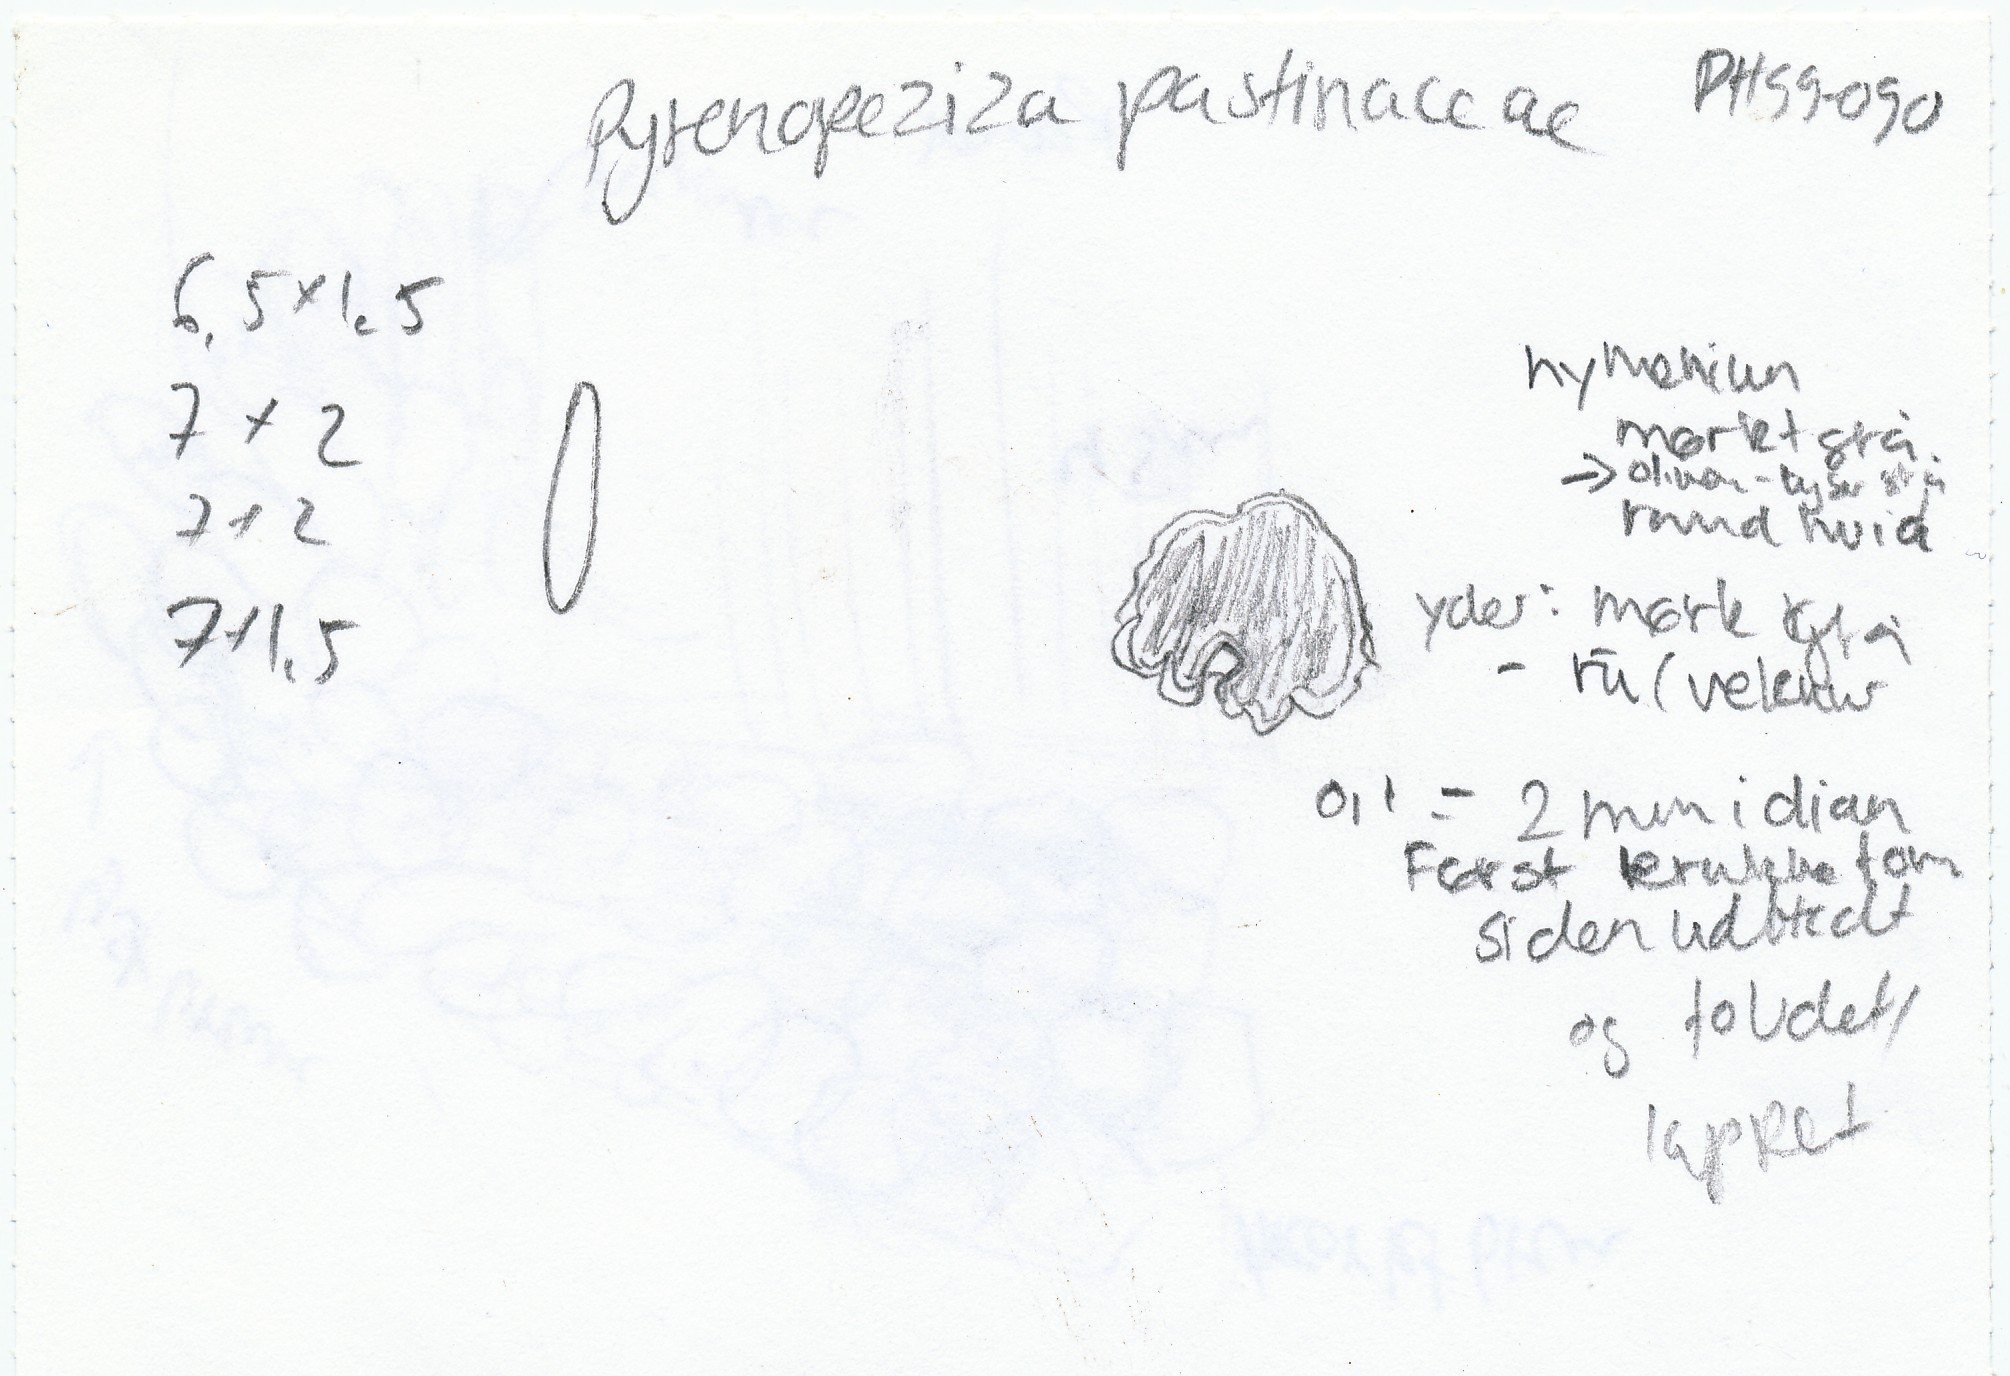 Pyrenopeziza pastinaceae PH99-090
6,5 x 1,5
7 x 2
7 x 2
7 x 1,5
hymenium
mørkt grå
→ oliven-lyse grå
rand hvid
yder: mørk grå
- ru (velour
0,1 - 2 mm i diam
Først krukkeform
siden udbredt
og foldet/
lappet